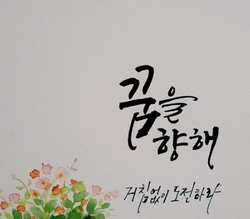 꿈을
향해
거침없이 도전하라